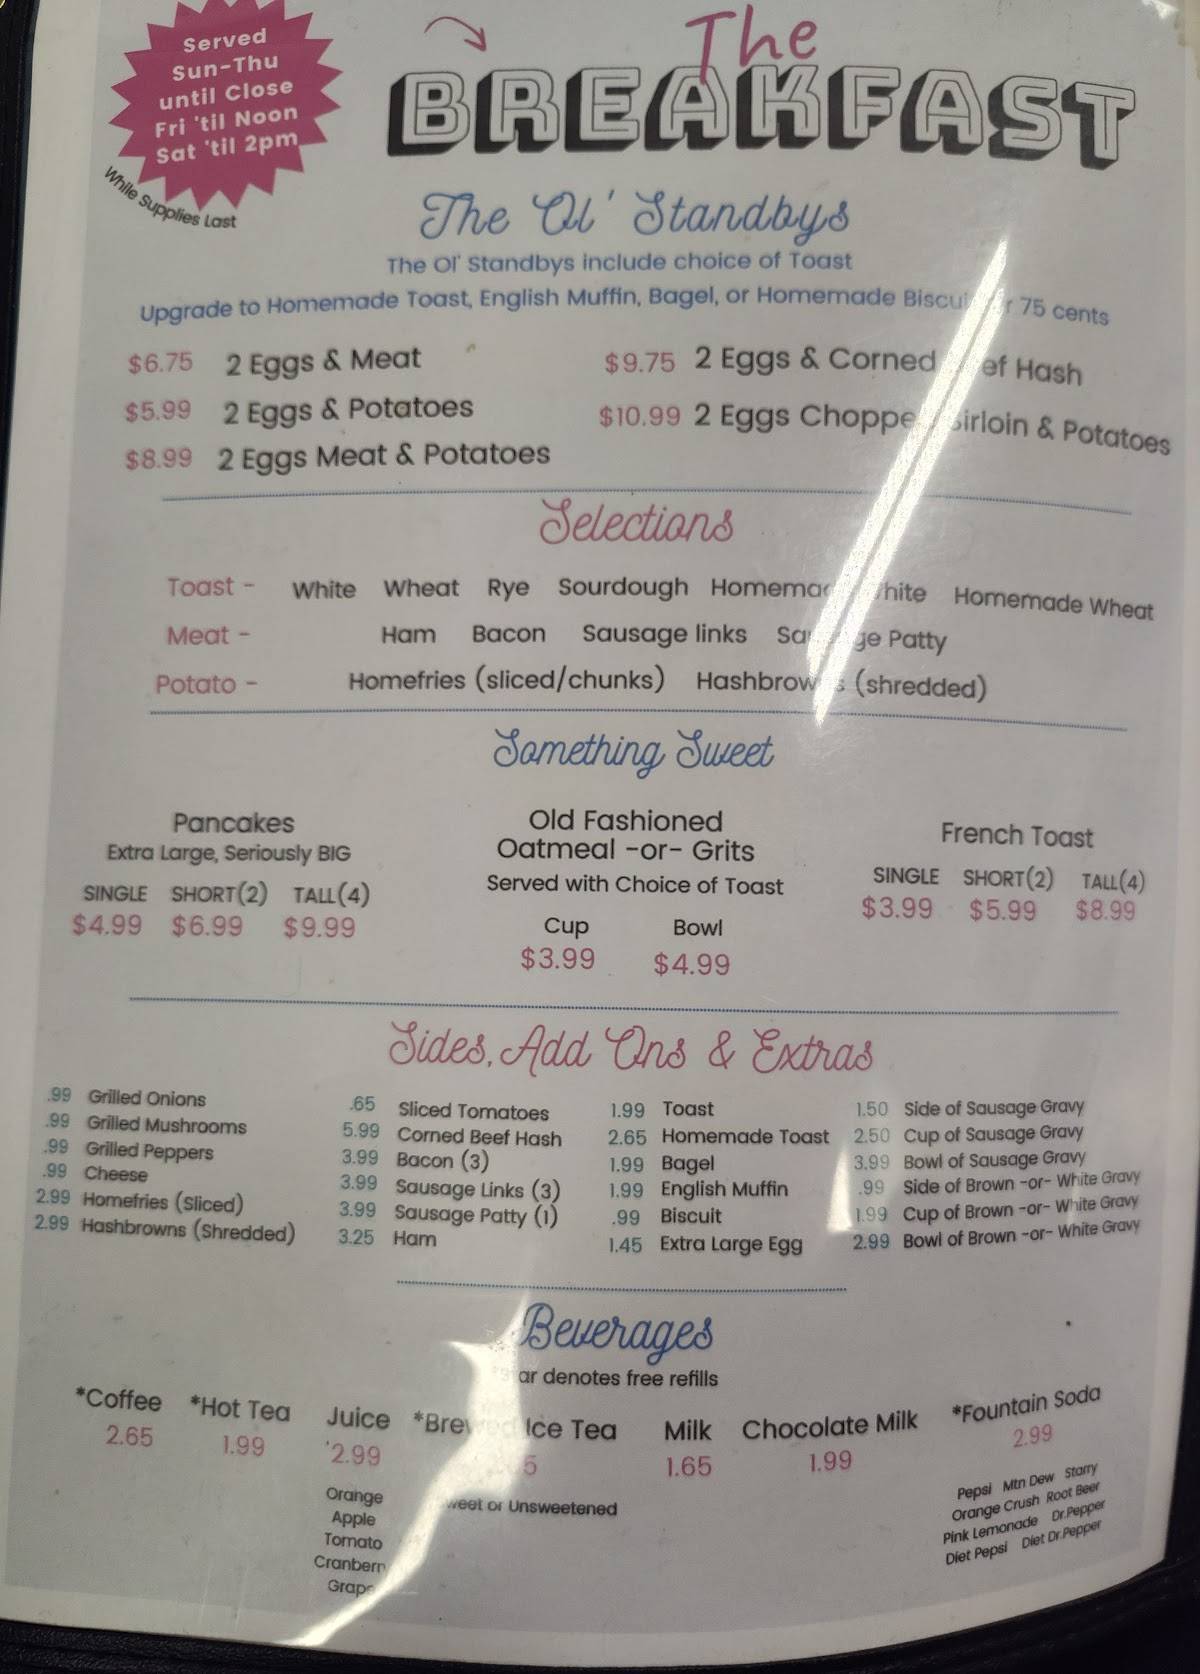 Served
Sun-Thu
until Close
Fri 'til Noon
Sat 'til 2pm
While Supplies Last
The
BREAKFAST
The Ol' Standbys
The Ol' Standbys include choice of Toast
Upgrade to Homemade Toast, English Muffin, Bagel, or Homemade 75 cents
$6.75 2 Eggs & Meat
$9.75 2 Eggs & Corned Hash
$5.99 2 Eggs & Potatoes
$10.99 2 Eggs & Potatoes
$8.99 2 Eggs Meat & Potatoes
Selections
Toast - White Wheat Rye Sourdough Homemade White Homemade Wheat
Meat - Ham Bacon Sausage links Sausage Patty
Potato - Homefries (sliced/chunks) Hashbrowns (shredded)
Something Sweet
Pancakes
Extra Large, Seriously BIG
SINGLE SHORT(2) TALL(4)
$4.99 $6.99 $9.99
Old Fashioned
Oatmeal -or- Grits
Served with Choice of Toast
Cup Bowl
$3.99 $4.99
French Toast
SINGLE SHORT(2) TALL(4)
$3.99 $5.99 $8.99
Sides, Add Ons & Extras
.99 Grilled Onions
.99 Grilled Mushrooms
.99 Grilled Peppers
.99 Cheese
2.99 Homefries (Sliced)
2.99 Hashbrowns (Shredded)
.65 Sliced Tomatoes
5.99 Corned Beef Hash
3.99 Bacon (3)
3.99 Sausage Links (3)
3.99 Sausage Patty (1)
3.25 Ham
1.99 Toast
2.65 Homemade Toast
1.99 Bagel
1.99 English Muffin
.99 Biscuit
1.45 Extra Large Egg
1.50 Side of Sausage Gravy
2.50 Cup of Sausage Gravy
3.99 Bowl of Sausage Gravy
.99 Side of Brown -or- White Gravy
1.99 Cup of Brown -or- White Gravy
2.99 Bowl of Brown -or- White Gravy
Beverages
denotes free refills
*Coffee
2.65
*Hot Tea
1.99
Juice
2.99
Orange
Apple
Tomato
Cranberry
Grape
*Brewed Ice Tea
or Unsweetened
Milk
1.65
Chocolate Milk
1.99
*Fountain Soda
2.99
Pepsi Mtn Dew Starry
Orange Crush Root Beer
Pink Lemonade Dr.Pepper
Diet Pepsi Diet Dr.Pepper